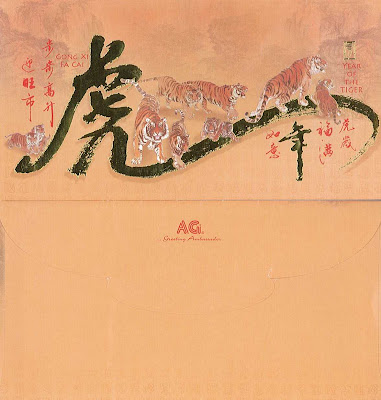 步步高升
迎旺市
GONG XI
FA CAI
虎
YEAR
OF THE
TIGER
虎岁
福满
年
如意
AG
Greeting Ambassador